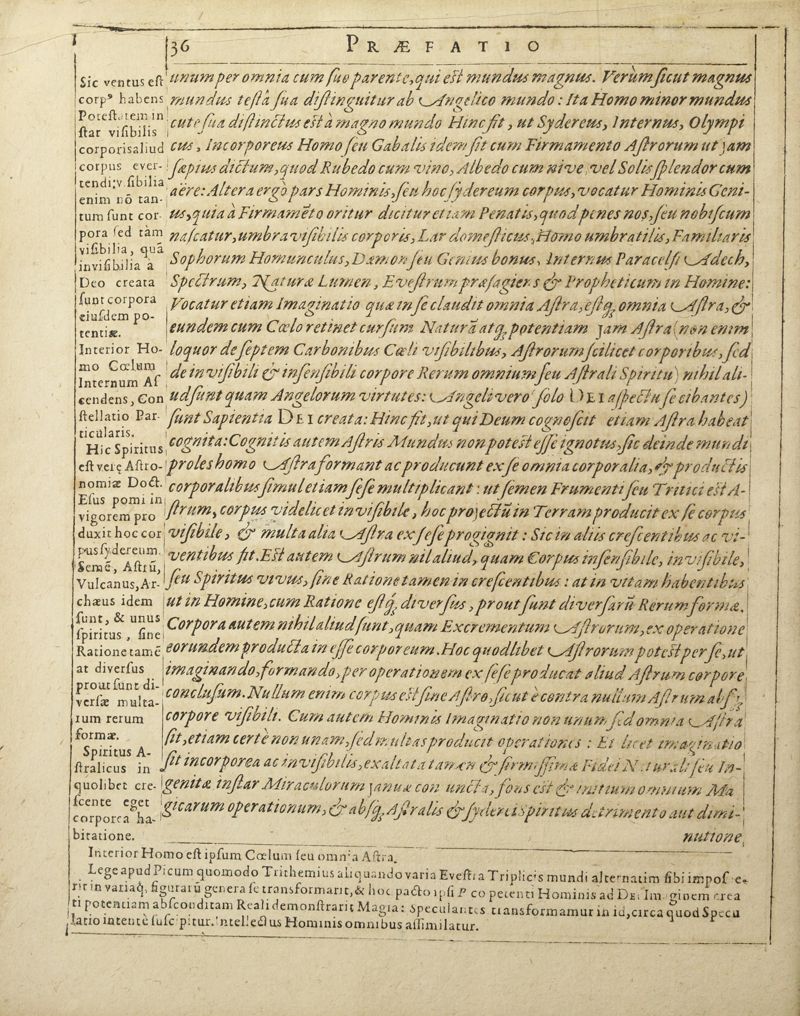 36
PRÆFATIO
Sic ventus eſt
corpꝰ habens
Poteſtatem in
ſtar viſibilis
corporis aliud
corpus ever-
tendi; viſibilia
enim nō tan-
tum ſunt cor-
pora ſed tàm
viſibilia, quā
inviſibilia à
Deo creata
ſunt corpora
eiuſdem po-
tentiæ.
Interior Ho-
mo Cœlum
Internum Aſ
cendens, Con
ſtellatio Par-
ticularis.
Hic Spiritus
eſt verę Aſtro-
nomiæ Doct.
Eſus pomi in
vigorem pro
duxit hoc cor
pus ſydereum.
Semē, Aſtrū,
Vulcanus, Ar-
chæus idem
ſunt, & unus
ſpiritus, ſine
Ratione tamē
at diverſus
prout ſunt di-
verſæ multa-
rum rerum
formæ.
Spiritus A-
ſtralicus in
quolibet cre-
ſcente eget
corporea ha-
bitatione.
unum per omnia cum ſuo parente, qui eſt mundus magnus. Verùm ſicut magnus
mundus teſtâ ſua diſtinguitur ab Angelico mundo: Ita Homo minor mundus
cute ſua diſtinctus est à magno mundo Hinc fit, ut Sydereus, Internus, Olympi
cus, Incorporeus Homo ſeu Gabalis idem ſit cum Firmamento Aſtrorum ut jam
ſæpius dictum, quod Rubedo cum vino, Albedo cum nive, vel Solis ſplendor cum
aëre: Altera ergò pars Hominis, ſeu hoc ſydereum corpus, vocatur Hominis Geni-
us, quia à Firmamēto oritur dicitur etiam Penatis, quod penes nos, ſeu nobiſcum
naſcatur, umbra viſibilis corporis, Lar domeſticus, Homo umbratilis, Familiaris
Sophorum Homunculus, Dæmon ſeu Genius bonus, Internus Paracelſi Adech,
Spectrum, Naturæ Lumen, Eveſtrum præſagiens & Propheticum in Homine:
Vocatur etiam Imaginatio quæ in ſe claudit omnia Aſtra, eſtq; omnia Aſtra, &
eundem cum Cœlo retinet curſum Naturā atq; potentiam jam Aſtra (non enim
loquor de ſeptem Carbonibus Cœli viſibilibus, Aſtrorum ſcilicet corporibus, ſed
de inviſibili & inſenſibili corpore Rerum omnium ſeu Aſtrali Spiritu) nihil ali-
ud ſunt quam Angelorum virtutes: Angeli vero ſolo DEI aſpectu ſe cibantes)
ſunt Sapientia DEI creata: Hinc fit, ut qui Deum cognoſcit etiam Aſtra habeat
cognita: Cognitis autem Aſtris Mundus non poteſt eſſe ignotus, ſic deinde mundi
proles homo Aſtra formant ac producunt ex ſe omnia corporalia, & productis
corporalibus ſimul etiam ſeſe multiplicant: ut ſemen Frumenti ſeu Tritici eſt A-
ſtrum, corpus videlicet inviſibile, hoc projectū in Terram producit ex ſe corpus
viſibile, & multa alia Aſtra ex ſeſe progignit: Sic in aliis creſcentibus ac vi-
ventibus fit. Eſt autem Aſtrum nil aliud, quam Corpus inſenſibile, inviſibile,
ſeu Spiritus vivus, ſine Ratione tamen in creſcentibus: at in vitam habentibus
ut in Homine, cum Ratione eſtq; diverſus, prout ſunt diverſarū Rerum formæ.
Corpora autem nihil aliud ſunt, quam Excrementum Aſtrorum, ex operatione
eorundem producta in eſſe corporeum. Hoc quodlibet Aſtrorum poteſt per ſe, ut
imaginando, formando, per operationem ex ſeſe producat aliud Aſtrum corpore
concluſum. Nullum enim corpus eſt ſine Aſtro, ſicut è contra nullum Aſtrum abſq;
corpore viſibili. Cum autem Hominis Imaginatio non unum ſed omnia Aſtra
ſit, etiam certè non unam, ſed multas producit operationes: Et licet imaginatio
ſit incorporea ac inviſibilis, exaltata tamen & firmiſſima Fidei Naturali ſeu In-
genitæ inſtar Miraculorum janua conjuncta, fons eſt & initium omnium Ma
gicarum operationum, & abſq; Aſtralis & ſyderei Spiritus detrimento aut dimi-
nutione
Interior Homo eſt ipſum Cœlum ſeu omnia Aſtra.
Lege apud Picum quomodo Trithemius aliquando varia Eveſtra Triplicis mundi alternatim ſibi impoſ
in variaq; figurarū genera ſe transformarit, & hoc pacto ipſi petenti Hominis ad DEI Imaginem crea
ti potentiam abſconditam Reali demonſtrarit Magia: Speculantes transformamur in id, circa quod Specu
latio intente ſuſcipitur. Intellectus Hominis omnibus aſſimilatur.